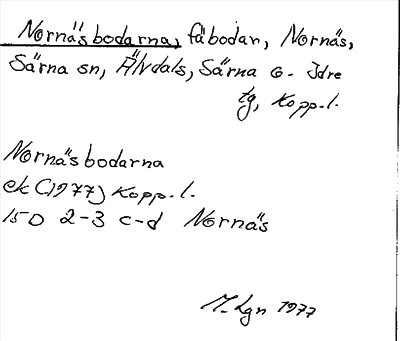 Nornäsbodarna, fäbodar, Nornäs,
Särna sn, Älvdals, Särna o. Idre
tg, Kopp. l.
Nornäsbodarna
ek (1977) Kopp. l.
15D 2-3 c-d Nornäs
M. Lgn 1977